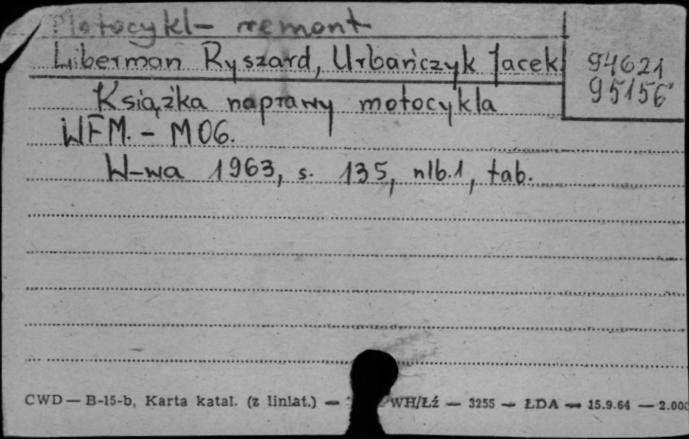 Motocykl - remont
Liberman Ryszard, Urbańczyk Jacek
94621
95156
Książka naprawy motocykla
WFM. - M06.
W-wa 1963, s. 135, nlb.1, tab.
CWD — B-15-b, Karta katal. (z liniat.) — WH/Łź — 3255 — ŁDA — 15.9.64 — 2.000